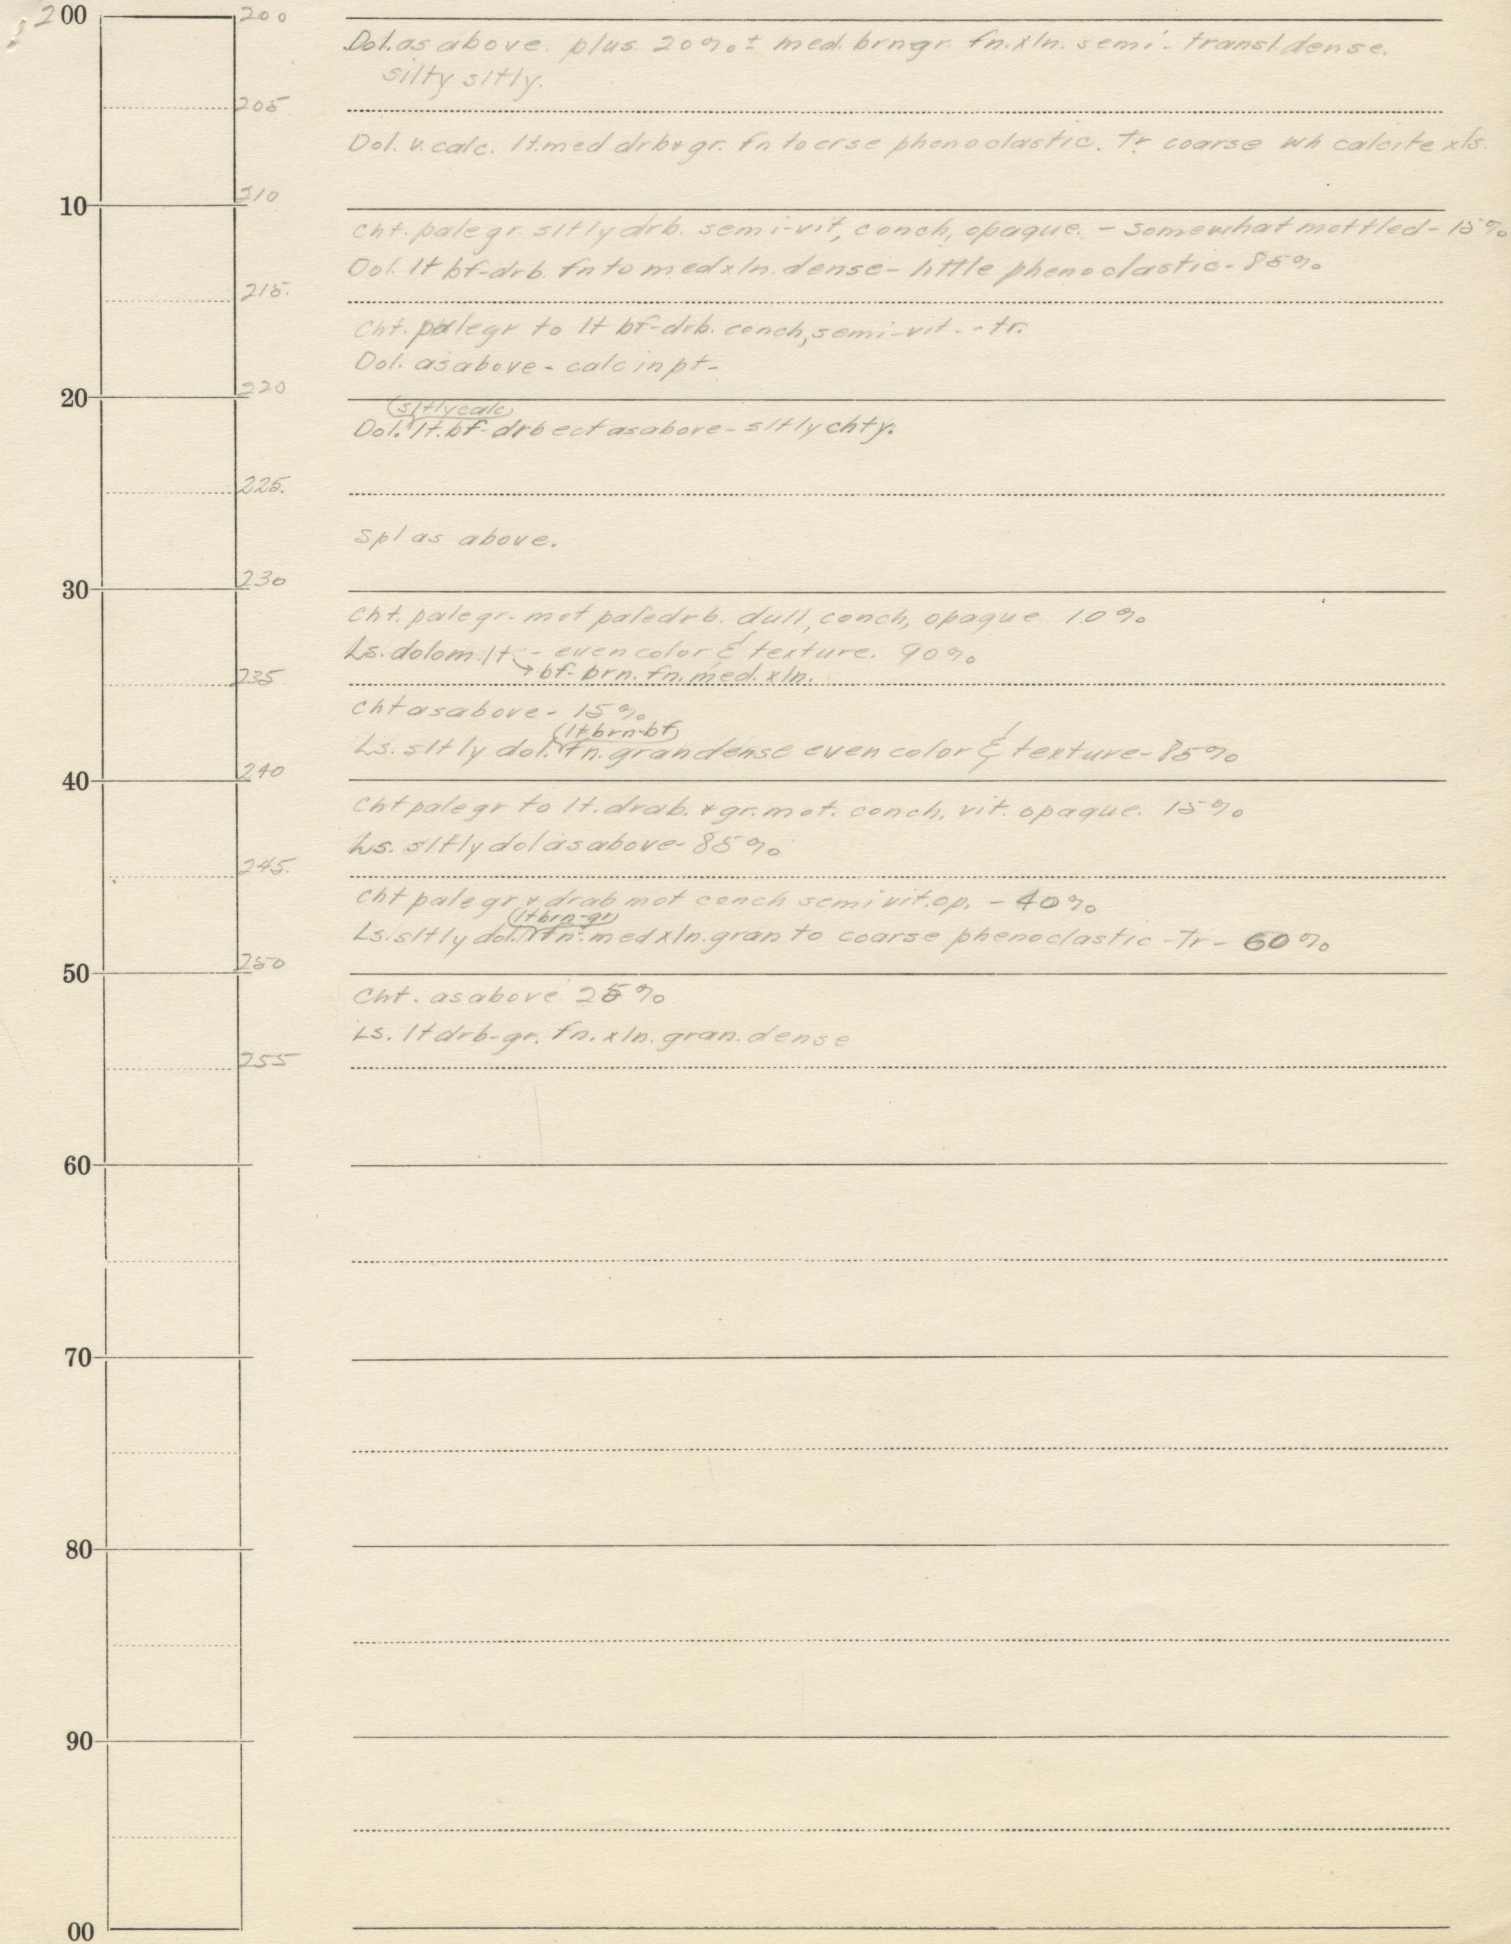 200 200
Dol. as above. plus 20%± med. brngr. fn. xln. semi-transl. dense.
silty sltly.
205
Dol. v. calc. lt. med drb & gr. fn to crse phenoclastic. Tr coarse wh calcite xls.
10 210
Cht. pale gr. sltly drb. semi-vit, conch, opaque. - somewhat mottled - 15%
Dol. lt bf-drb. fn to med xln. dense - little phenoclastic - 85%
215.
Cht. pale gr to lt bf-drb. conch, semi-vit - - tr.
Dol. as above - calc in pt -
20 220
(sltly calc)
Dol. lt. bf-drb ect as above - sltly chty.
225.
Spl as above.
30 230
Cht. pale gr. mot pale drb. dull, conch, opaque 10%
Ls. dolom. lt - even color & texture. 90%
→ bf-brn. fn. med. xln.
235
Cht as above - 15%
(lt brn-bf)
Ls. sltly dol. fn. gran dense even color & texture - 85%
40 240
Cht pale gr to lt. drab. & gr. mot. conch, vit. opaque. 15%
Ls. sltly dol as above - 85%
245.
Cht pale gr & drab mot conch semi vit. op. - 40%
(lt brn-gr)
Ls. sltly dol. fn-med xln. gran to coarse phenoclastic - Tr - 60%
50 250
Cht. as above 25%
Ls. lt drb-gr. fn. xln. gran. dense
255
60
70
80
90
00